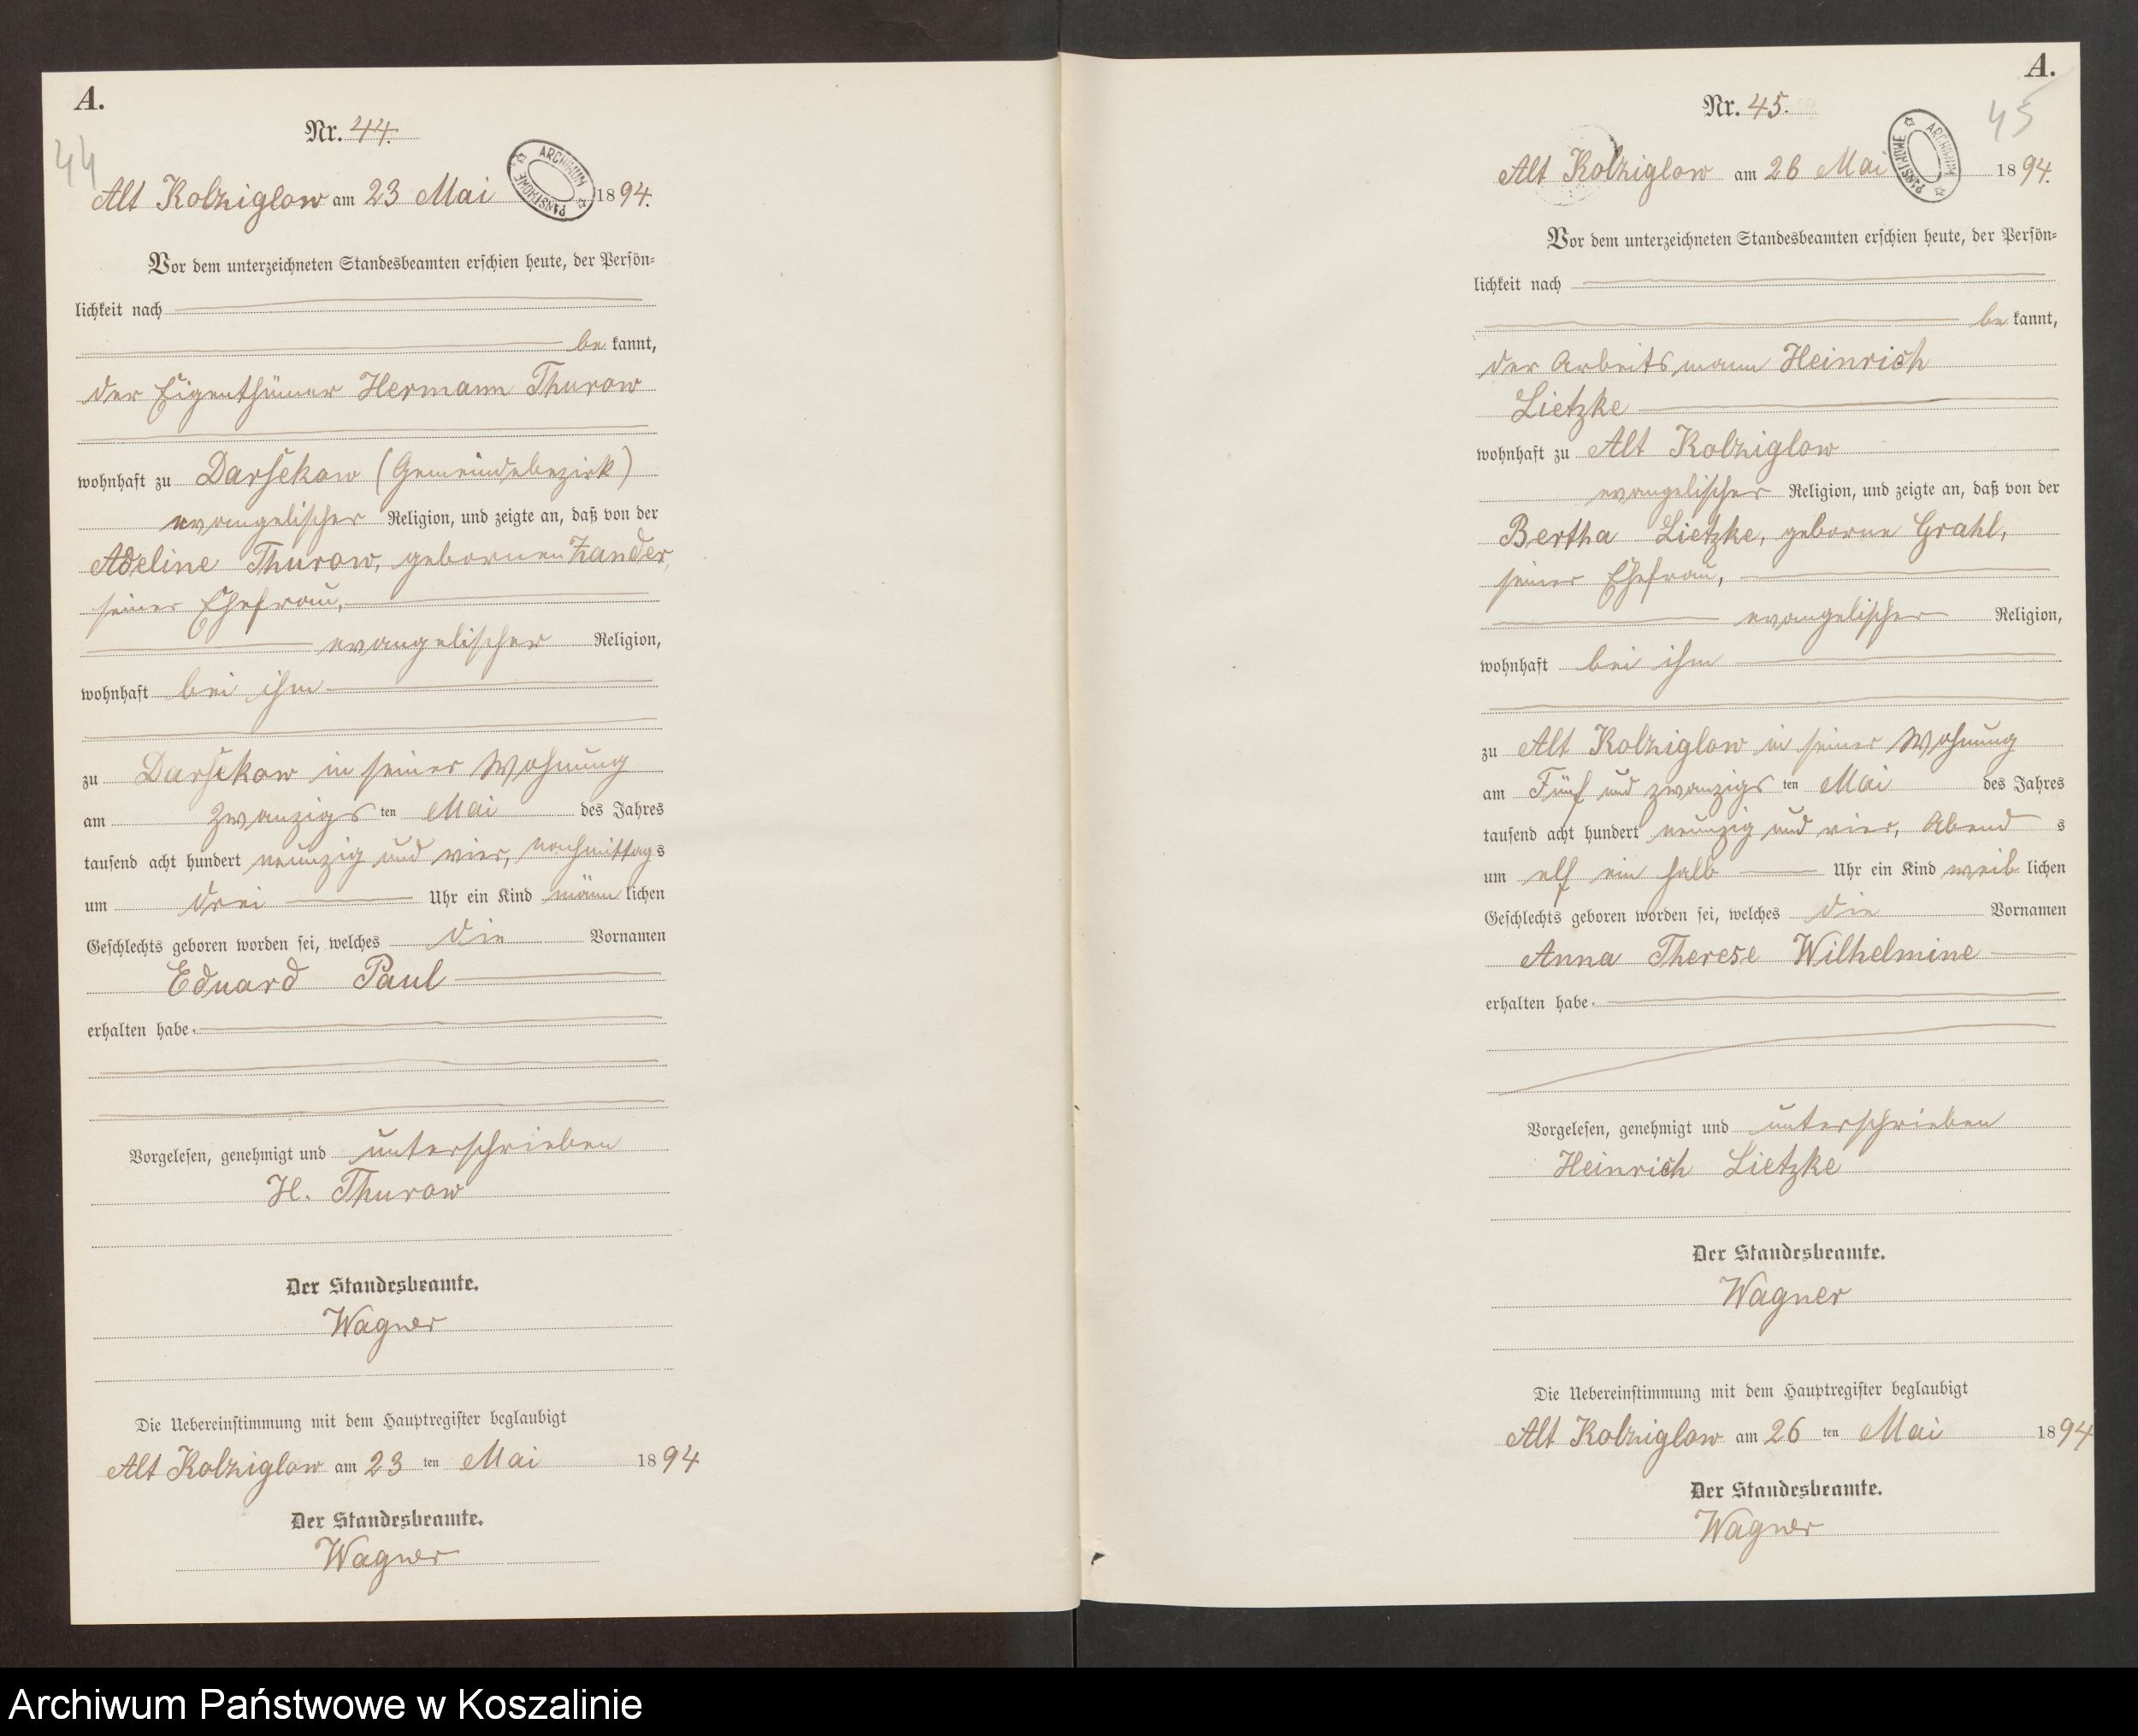 A.
44
Nr. 44.
ARCHIWUM PAŃSTWOWE
Alt Kolziglow am 23 Mai 1894.
Vor dem unterzeichneten Standesbeamten erschien heute, der Persön-
lichkeit nach
be kannt,
der Eigenthümer Hermann Thurow
wohnhaft zu Darsekow (Gemeindebezirk)
evangelischer Religion, und zeigte an, daß von der
Adeline Thurow, gebornen Zander,
seiner Ehefrau,
evangelischer Religion,
wohnhaft bei ihm
zu Darsekow in seiner Wohnung
am zwanzigs ten Mai des Jahres
tausend acht hundert neunzig und vier, nachmittags
um drei Uhr ein Kind männ lichen
Geschlechts geboren worden sei, welches die Vornamen
Eduard Paul
erhalten habe.
Vorgelesen, genehmigt und unterschrieben
H. Thurow
Der Standesbeamte.
Wagner
Die Uebereinstimmung mit dem Hauptregister beglaubigt
Alt Kolziglow am 23 ten Mai 1894
Der Standesbeamte.
Wagner
A.
45
Nr. 45.
ARCHIWUM PAŃSTWOWE
Alt Kolziglow am 26 Mai 1894.
Vor dem unterzeichneten Standesbeamten erschien heute, der Persön-
lichkeit nach
be kannt,
der Arbeitsmann Heinrich
Lietzke
wohnhaft zu Alt Kolziglow
evangelischer Religion, und zeigte an, daß von der
Bertha Lietzke, geborne Grahl,
seiner Ehefrau,
evangelischer Religion,
wohnhaft bei ihm
zu Alt Kolziglow in seiner Wohnung
am Fünf und zwanzigs ten Mai des Jahres
tausend acht hundert neunzig und vier, Abend s
um elf ein halb Uhr ein Kind weib lichen
Geschlechts geboren worden sei, welches die Vornamen
Anna Therese Wilhelmine
erhalten habe.
Vorgelesen, genehmigt und unterschrieben
Heinrich Lietzke
Der Standesbeamte.
Wagner
Die Uebereinstimmung mit dem Hauptregister beglaubigt
Alt Kolziglow am 26 ten Mai 1894
Der Standesbeamte.
Wagner
Archiwum Państwowe w Koszalinie